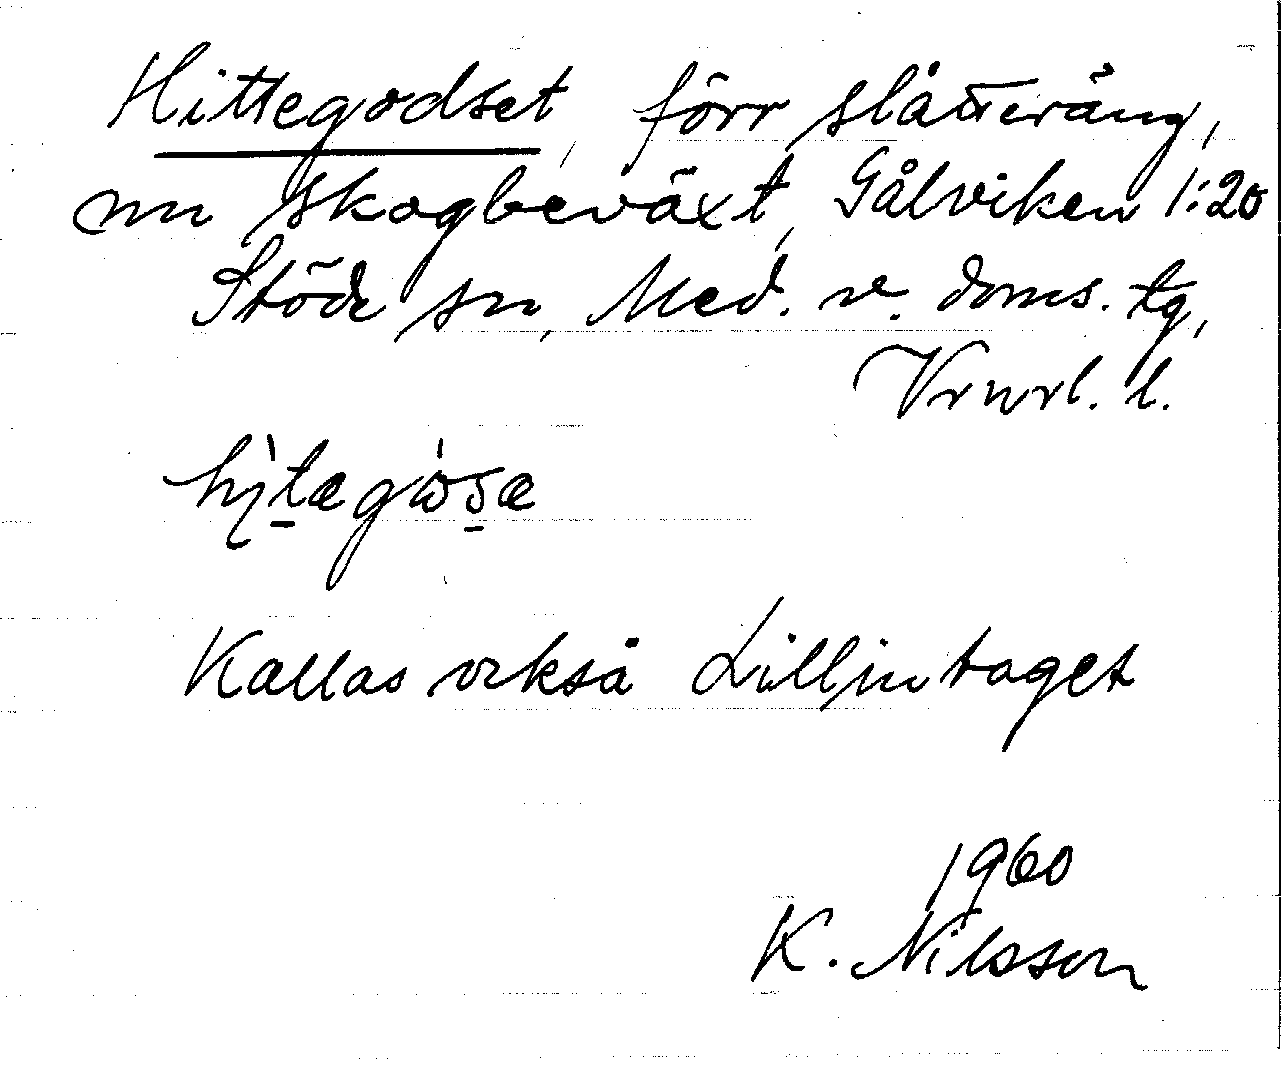 Hittegodset, förr slåtteräng,
nu skogbeväxt, Gålviken 1:20
Stöde sn, Med. v. doms. tg,
Vrnrl. l.
Kallas också Lillintaget
1960
K. Nilsson